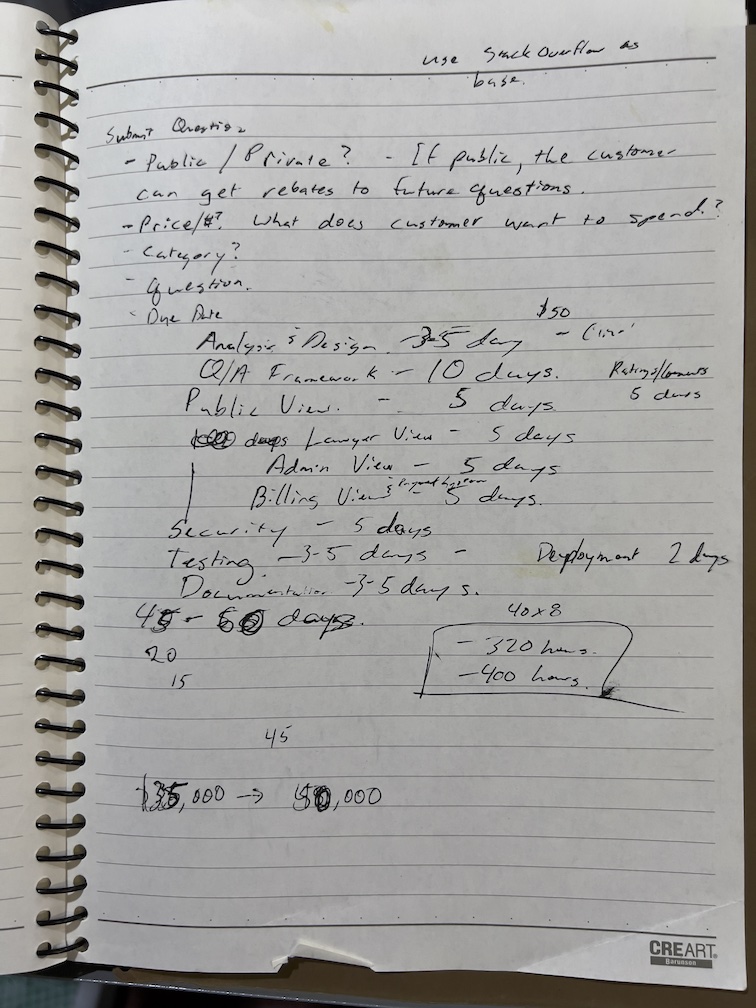 use Stack Overflow as
base.
Submit Question
- Public / Private? - If public, the customer
can get rebates to future questions.
- Price/#? What does customer want to spend?
- Category?
- Question.
- Due Date
$50
Analysis & Design - 3-5 day -
Q/A Framework - 10 days. Ratings/Comments
5 days
Public View. - 5 days
days Lawyer View - 5 days
Admin View - 5 days
& Payment System
Billing View - 5 days.
Security - 5 days
Testing - 3-5 days - Deployment 2 days
Documentation - 3-5 days.
45 - 50 days.
40x8
20
- 320 hours.
15
- 400 hours.
45
$35,000 → 50,000
CREART
Barunson